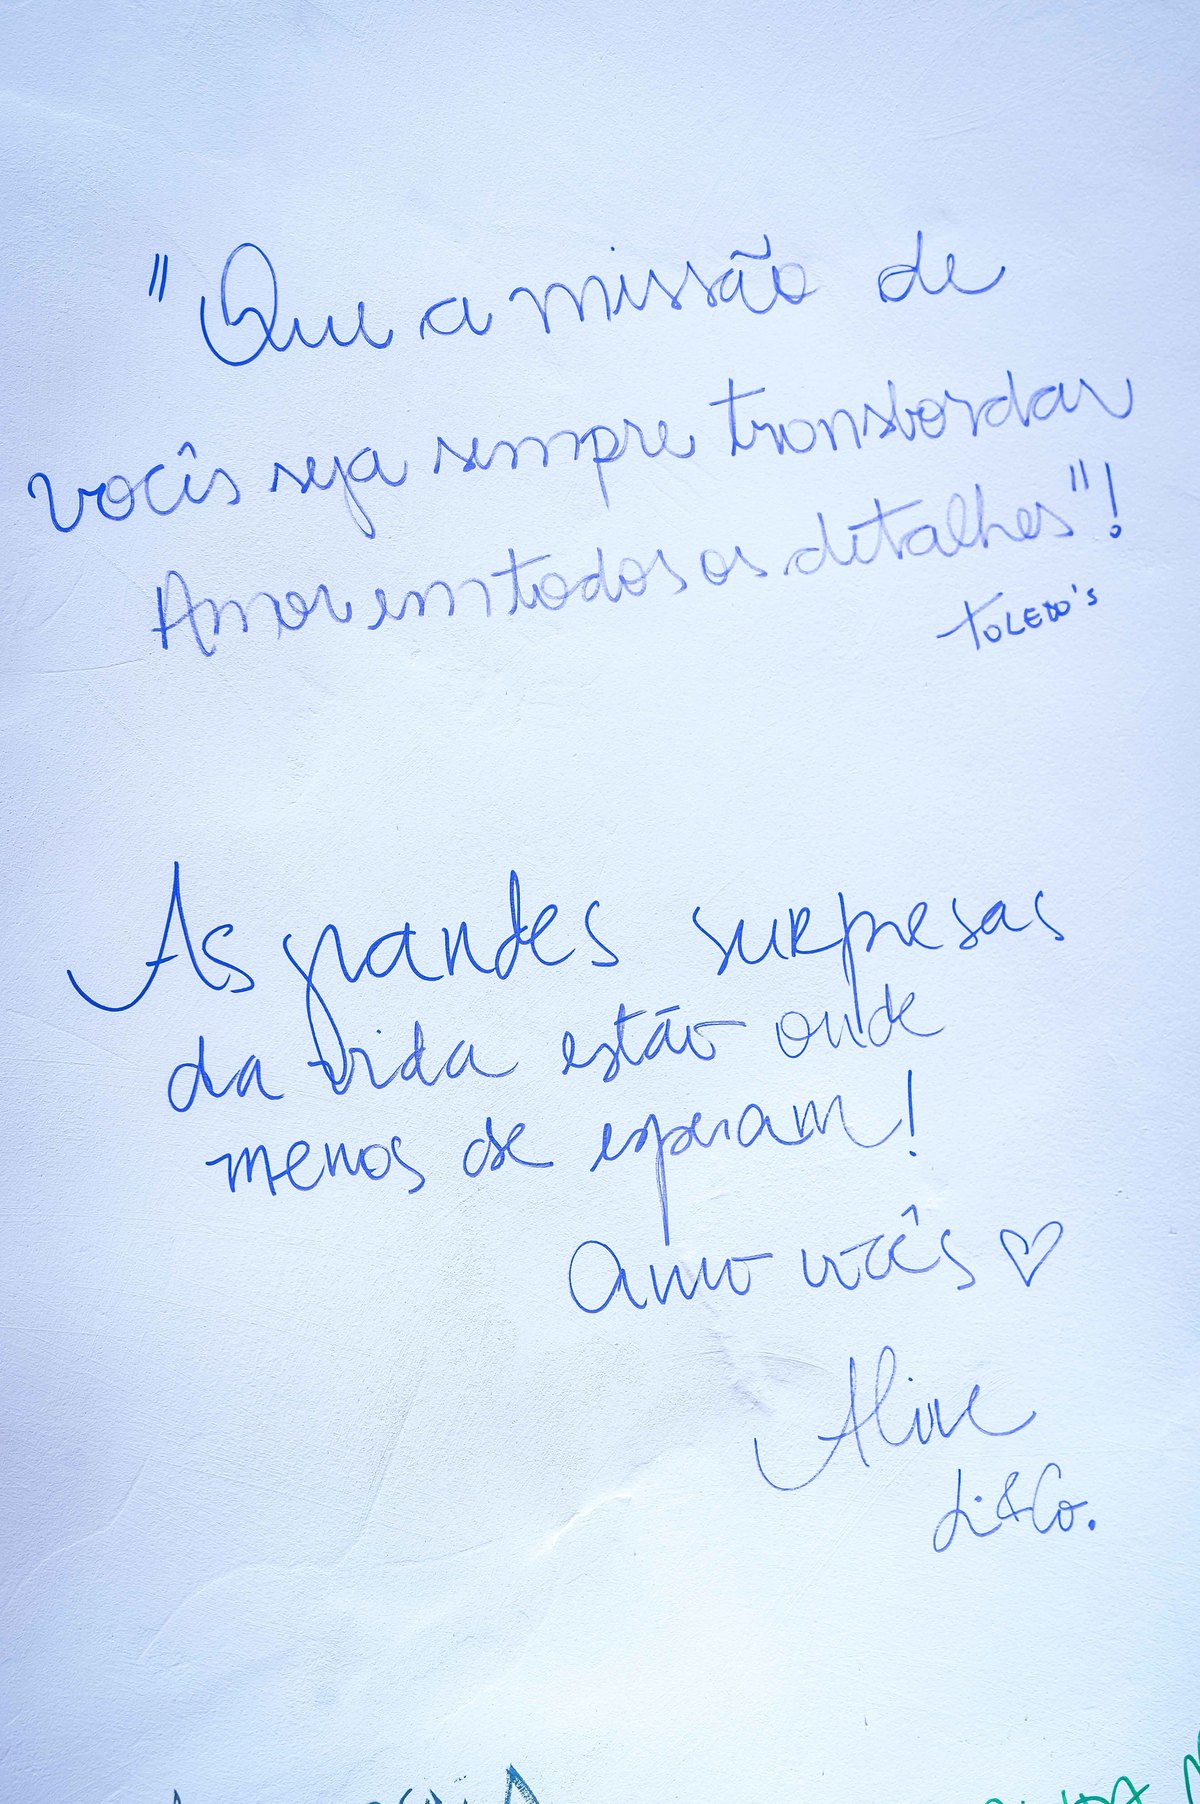 "Que a missão de
vocês seja sempre transbordar
Amor em todos os detalhes"!
TOLEDO's
As grandes surpresas
da vida estão onde
menos se esperam!
Amo vocês ♡
Aline
Li&Co.